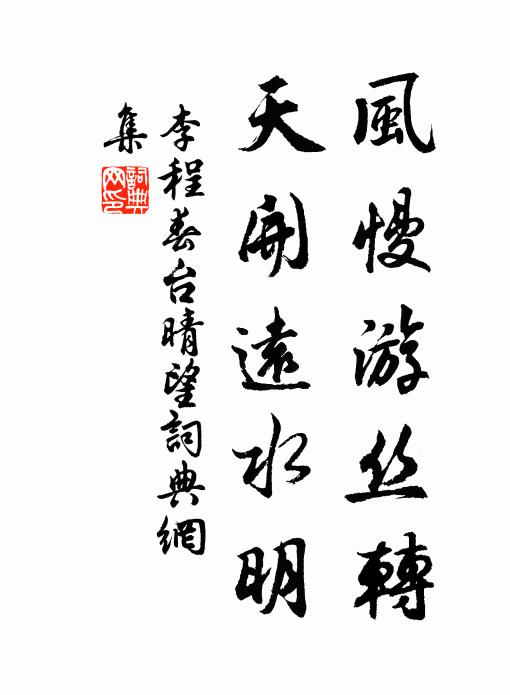 風慢游丝轉
天開遠水明
李程春台晴望詞典網
集
詞典
网印